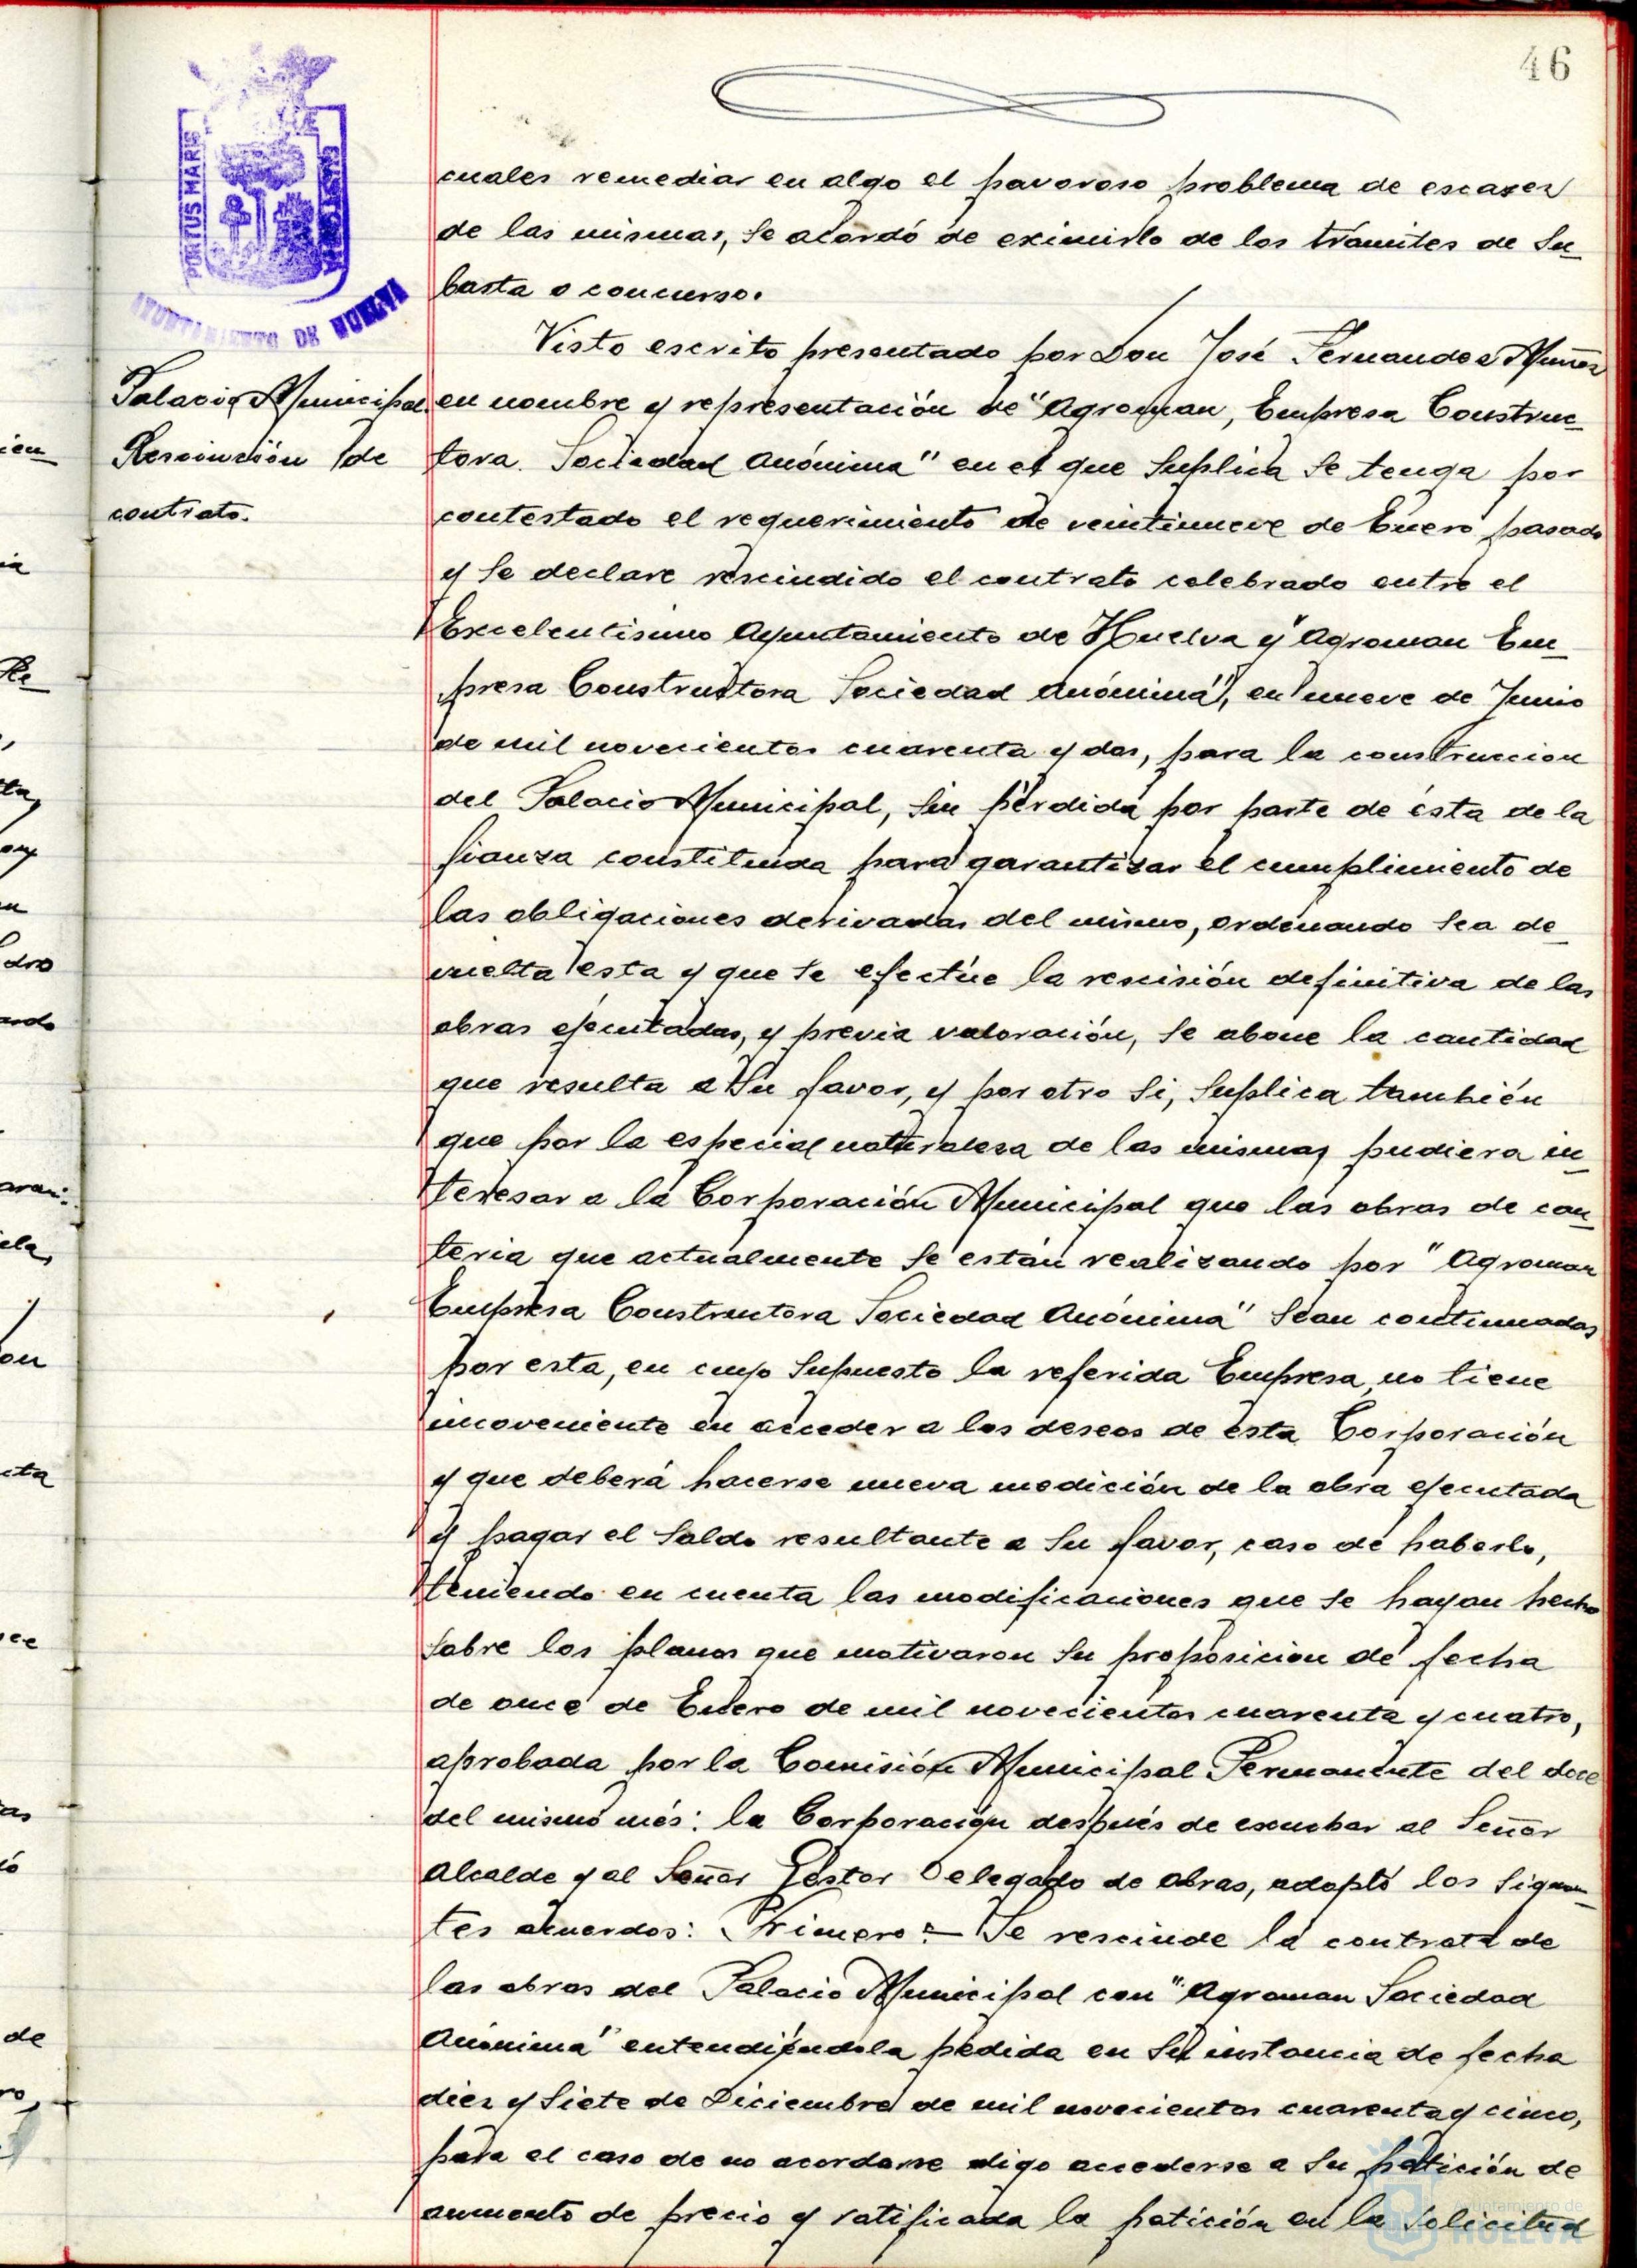 46
PORTUS MARIS
AYUNTAMIENTO DE HUELVA
cuales remediar en algo el pavoroso problema de escasez
de las mismas, se acordó de eximirlo de los trámites de su_
basta o concurso.
Visto escrito presentado por Don José Fernandez Muñoz
Palacio Municipal.
Rescinsión de
contrato.
en nombre y representación de "Agroman, Empresa Construc_
tora. Sociedad Anónima" en el que suplica se tenga por
contestado el requerimiento de veintinueve de Enero pasado
y se declare rescindido el contrato celebrado entre el
Excelentisimo Ayuntamiento de Huelva y "Agroman Em_
presa Constructora Sociedad Anónima", en nueve de Junio
de mil novecientos cuarenta y dos, para la construccion
del Palacio Municipal, sin pérdida por parte de ésta de la
fianza constituida para garantizar el cumplimiento de
las obligaciones derivadas del mismo, ordenando sea de_
vuelta esta y que se efectúe la rescisión definitiva de las
obras ejecutadas, y previa valoración, se abone la cantidad
que resulta a su favor, y por otro si, suplica también
que por la especial naturaleza de las mismas pudiera in_
teresar a la Corporación Municipal que las obras de can_
teria que actualmente se están realizando por "Agroman
Empresa Constructora Sociedad Anónima" sean continuadas
por esta, en cuyo supuesto la referida Empresa, no tiene
incoveniente en acceder a los deseos de ésta Corporación
y que deberá hacerse nueva medición de la obra ejecutada
y pagar el saldo resultante a su favor, caso de haberlo,
teniendo en cuenta las modificaciones que se hayan hecho
sobre los planos que motivaron su proposicion de fecha
de once de Enero de mil novecientos cuarenta y cuatro,
aprobada por la Comisión Municipal Permanente del doce
del mismo més: la Corporación después de escuchar al Señor
Alcalde y al Señor Gestor Delegado de obras, adoptó los siguien_
tes acuerdos: Primero = Se rescinde la contrata de
las obras del Palacio Municipal con "Agroman Sociedad
Anónima" entendiéndola pedida en su instancia de fecha
diez y siete de Diciembre de mil novecientos cuarenta y cinco,
para el caso de no acordarse digo accederse a su petición de
aumento de precio y ratificada la petición en la solicitud
Ayuntamiento de
HUELVA